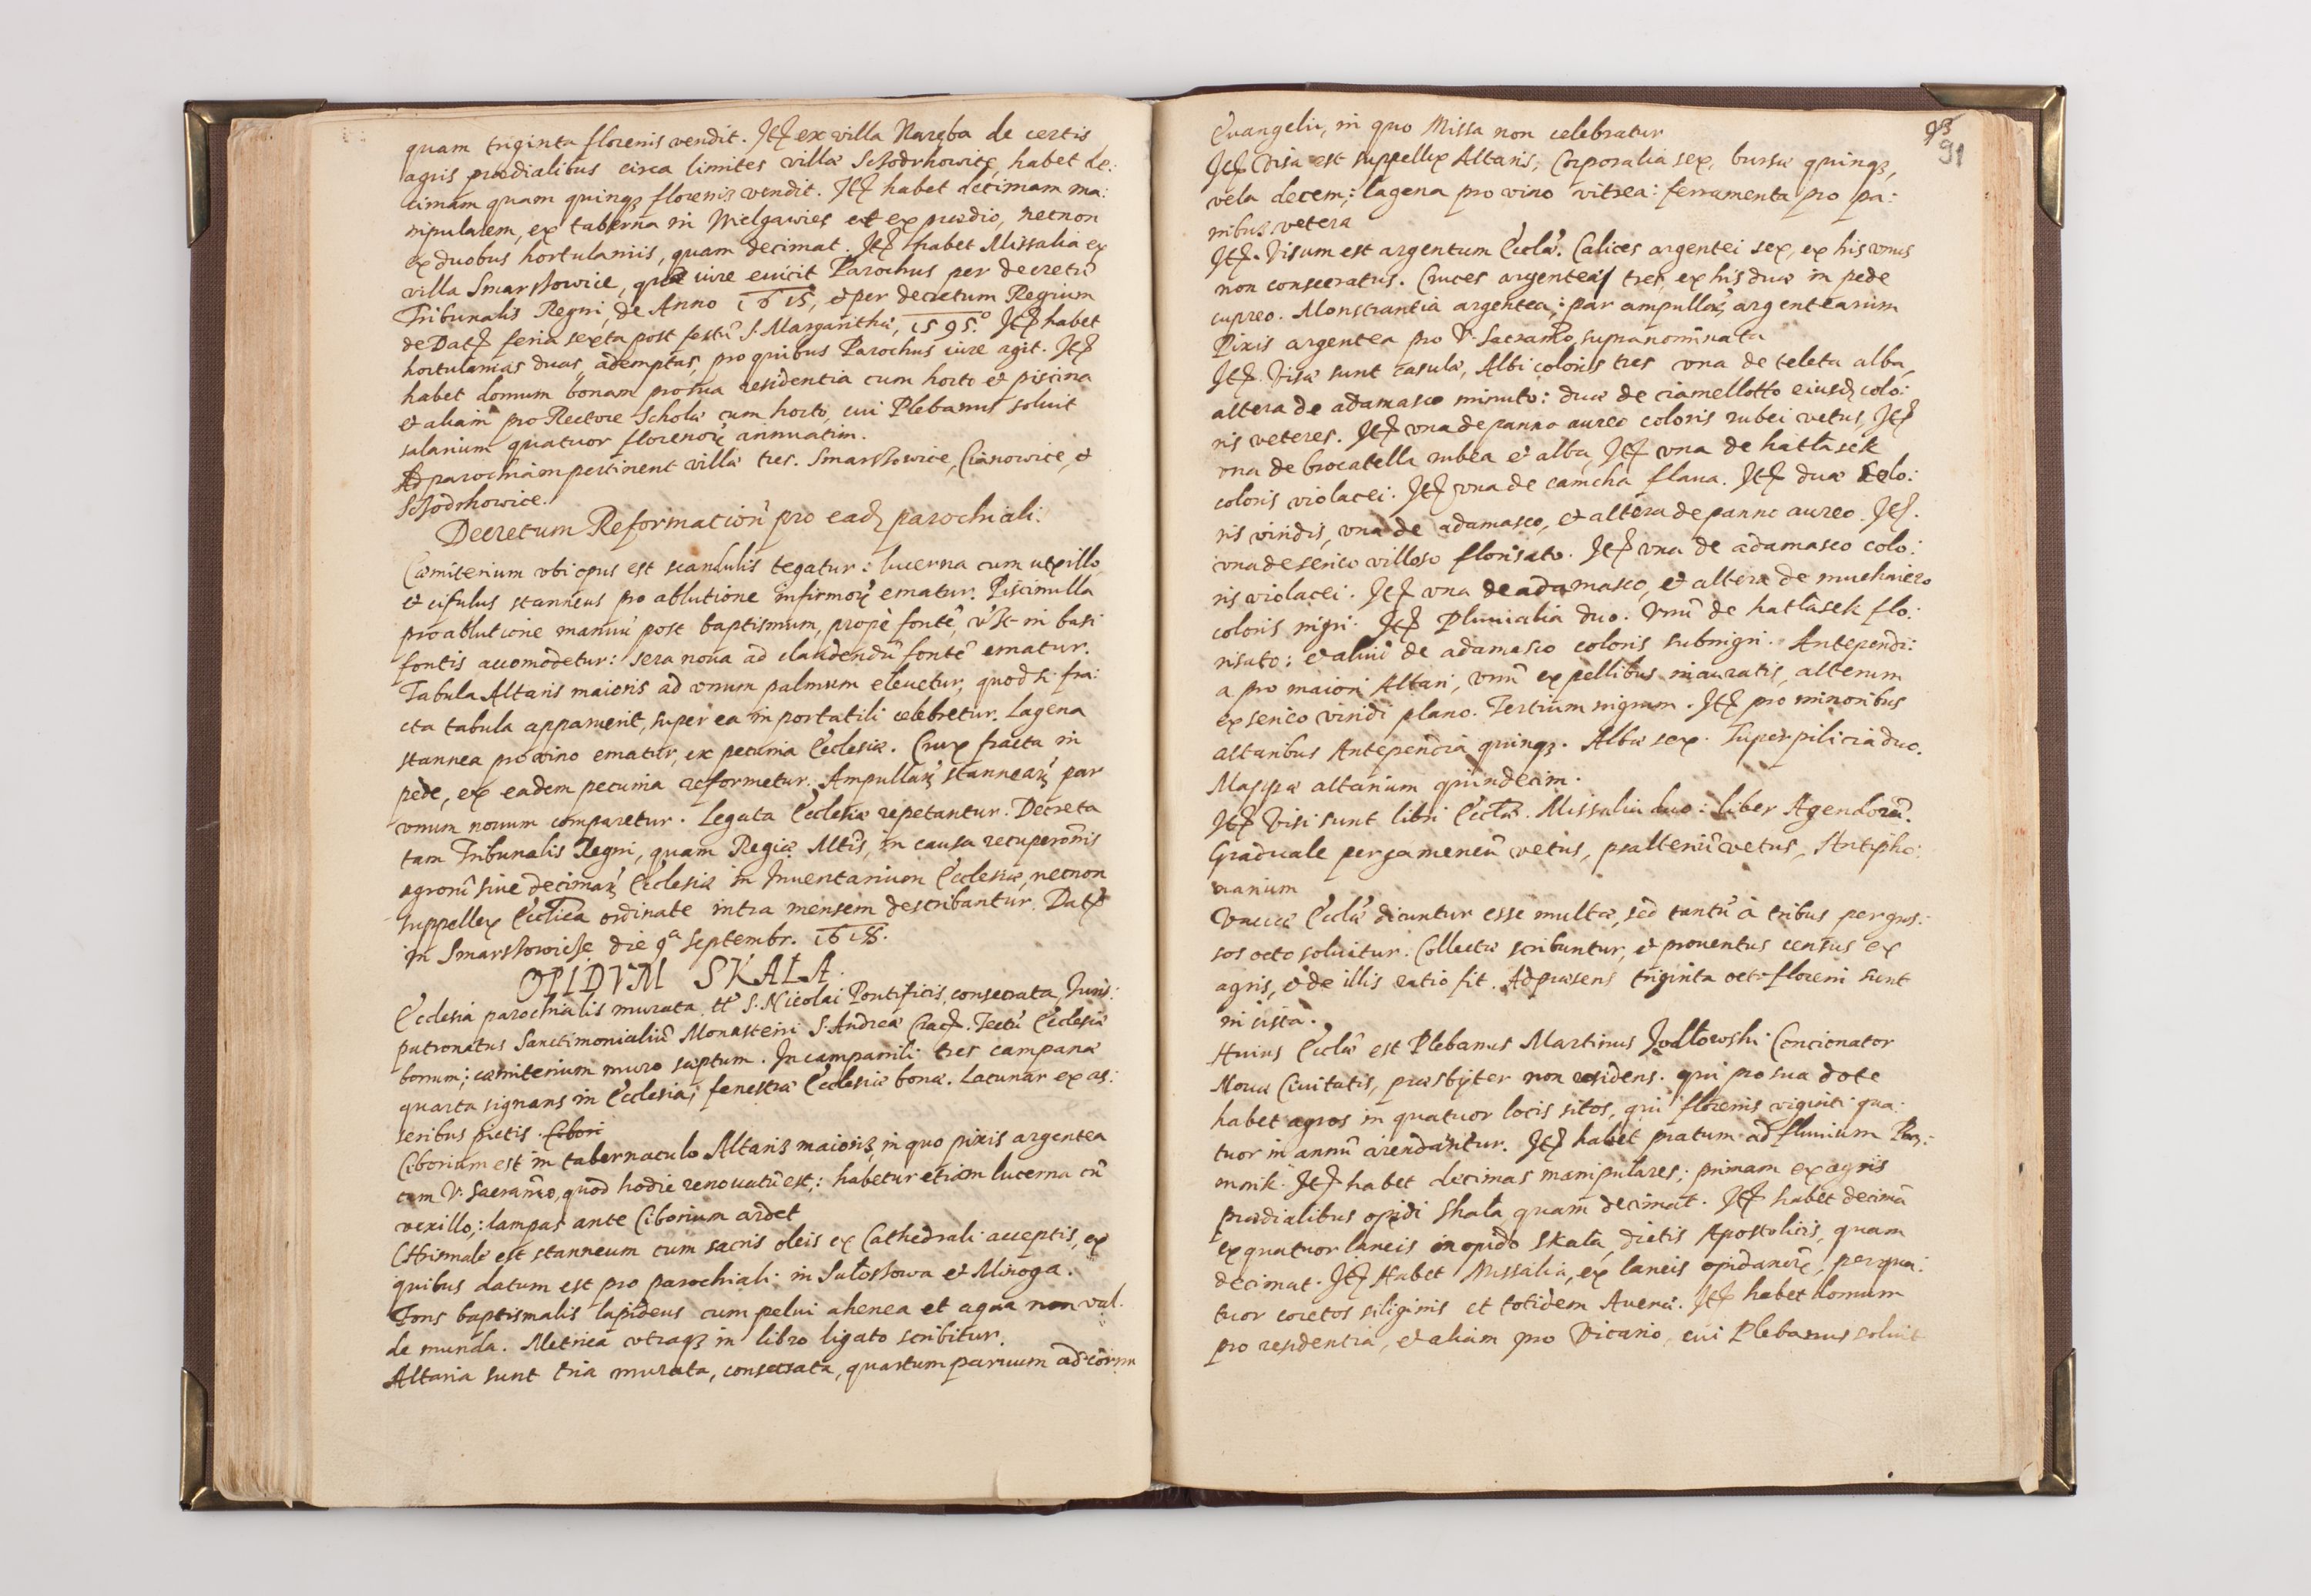 quam triginta florenis vendit. Itē ex villa Naręba de certis
agris prædialibus circa limites villæ Schodrhowice, habet de:
cimam quam quinqȝ florenis vendit. Itē habet decimam ma:
nipularem, ex taberna in Mielgawies et ex prædio, necnon
ex duobus hortulaniis, quam decimat. Itē habet Missalia ex
villa Smarszowice, quæ iure euicit Parochus per decretū
Tribunalis Regni, de Anno 1615, et per decretum Regium
de Datē feria sexta post festū S. Margarithæ, 1595.º Itē habet
hortulanias duas, ademptas, pro quibus Parochus iure agit. Itē
habet domum bonam pro sua residentia cum horto et piscina
et aliam pro Rectore Scholæ cum horto, cui Plebanus soluit
salarium quatuor florenorū annuatim.
Ad parochiam pertinent villæ tres. Smarszowice, Cianowice, et
Schodrhowice.
Decretum Reformation̄ pro eadē parochiali.
Cœmiterium vbi opus est scandulis tegatur: lucerna cum vexillo,
et cifulus stanneus pro ablutione infirmorū ematur. Piscinulla
pro ablutione manuū post baptismum, propè fontē, vel in basi
fontis accomodetur: sera noua ad claudendū fontē ematur.
Tabula Altaris maioris ad vnum palmum eleuetur, quod si fra:
cta tabula apparuerit, super ea in portatili celebretur. Lagena
stannea pro vino ematur, ex pecunia Ecclesiæ. Crux fracta in
pede, ex eadem pecunia reformetur. Ampullarū stannearū par
vnum nouum comparetur. Legata Ecclesiæ repetantur. Decreta
tam Tribunalis Regni, quam Regiæ Mtis, in causa recuperōnis
agrorū siue decimarū Ecclesiæ in Inuentarium Ecclesiæ, necnon
suppellex Eccliæ ordinate intra mensem describantur. Datē
in Smarszowice die 9ª Septembr. 1618.
OPIDVM SKAŁA.
Ecclesia parochialis murata, tt S. Nicolai Pontificis, consecrata, Iuris:
patronatus Sanctimonialiū Monasterii S. Andreæ Crac. Tectū Ecclesiæ
bonum; cæmiterium muro sæptum. In campanili tres campanæ
quarta signans in Ecclesia; fenestræ Ecclesiæ bonæ. Lacunar ex as:
seribus pictis. Cibori
Ciborium est in tabernaculo Altaris maioris, in quo pixis argentea
cum V. Sacramēto, quod hodie renouatū est: habetur etiam lucerna cū
vexillo; lampas ante Ciborium ardet
Chrismale est stanneum cum sacris oleis ex Cathedrali acceptis, ex
quibus datum est pro parochiali in Sułoszowa et Minoga.
Fons baptismalis lapideus cum pelui ahenea et aqua non val:
de munda. Metrica vtraqȝ in libro ligato scribitur.
Altaria sunt tria murata, consecrata, quartum paruum ad cornu
93
91
Euangelii, in quo Missa non celebratur
Itē Visa est suppellex Altaris, Corporalia sex, bursæ quinqȝ,
vela decem; lagena pro vino vitrea: ferramenta pro pa:
nibus vetera
Itē. Visum est argentum Eccliæ. Calices argentei sex, ex his vnus
non consecratus. Cruces argenteæ tres, ex his duæ in pede
cupreo. Monstrantia argentea; par ampullarū argentearum
Pixis argentea pro V. Sacramēto supranominata
Itē. Visæ sunt casulæ, Albi coloris tres vna de teleta alba,
altera de adamasco minuto: duæ de ciamellotto eiusdē colo:
ris veteres. Itē vna de panno aureo coloris rubei vetus, Itē
vna de brocatella rubea et alba, Itē vna de hatłasek
coloris violacei. Itē vna de camcha flaua. Itē duæ colo:
ris viridis, vna de adamasco, et altera de panno aureo. Itē.
vna de serico villoso florisato. Itē vna de adamasco colo:
ris violacei. Itē vna de adamasco, et altera de muchaiero
coloris nigri. Itē Pluuialia duo. Vnū de hatłasek flo:
risato: et aliud de adamasco coloris subnigri. Antependi:
a pro maiori Altari, vnū ex pellibus inauratis, alterum
ex serico viridi plano. Tertium nigrum. Itē pro minoribus
altaribus Antependia quinqȝ. Albæ sex. Superpilicia duo.
Mappæ altarium quindecim.
Itē Visi sunt libri Eccliæ. Missalia duo: liber Agendorū.
Graduale pergameneū vetus, psalteriū vetus, Antipho:
narium
Vaccæ Eccliæ dicuntur esse multæ, sed tantū à tribus per gros:
sos octo soluitur. Collectæ scribuntur, et prouentus census ex
agris, et de illis ratio fit. Ad præsens triginta octo floreni sunt
in cista.
Huius Eccliæ est Plebanus Martinus Jodłowski Concionator
Nouæ Ciuitatis, præsbyter non residens. qui pro sua dote
habet agros in quatuor locis sitos, qui florenis viginti qua:
tuor in annū arendantur. Itē habet pratum ad fluuium
Itē habet decimas manipulares; primam ex agris
prædialibus opidi Skała quam decimat. Itē habet decimā
ex quatuor laneis in opido Skała, dictis Apostolicis, quam
decimat. Itē Habet Missalia, ex laneis opidanorū, per qua:
tuor coretos siliginis et totidem Auenæ. Itē habet domum
pro residentia, et aliam pro Vicario, cui Plebanus soluit